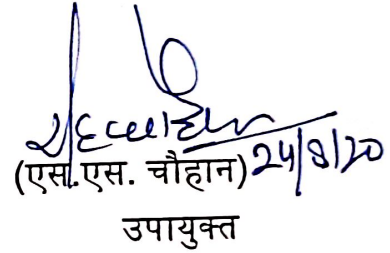 (एस.एस. चौहान) 24/8/20
उपायुक्त